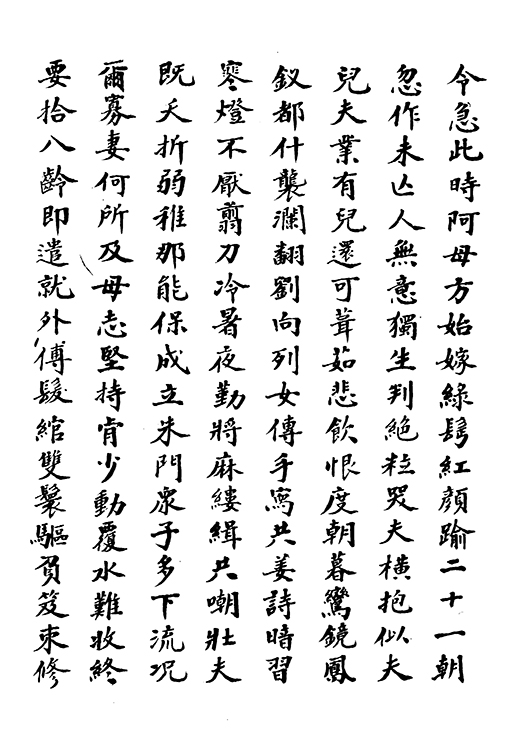 令急此時阿母方始嫁綠鬂紅顔踰二十一朝
忽作未亾人無意獨生判絶粒哭夫橫抱似夫
兒夫業有兒還可葺茹悲飲恨度朝暮鸞鏡鳳
釵都什襲瀾翻劉向列女傳手寫共姜詩暗習
寒燈不厭翦刀冷暑夜勤將麻縷緝共嘲壯夫
既夭折弱稚那能保成立朱門衆子多下流况
爾寡妻何所及母志堅持肯少動覆水難收終
要拾八齡即遣就外傅髮綰雙鬟驅負笈束修